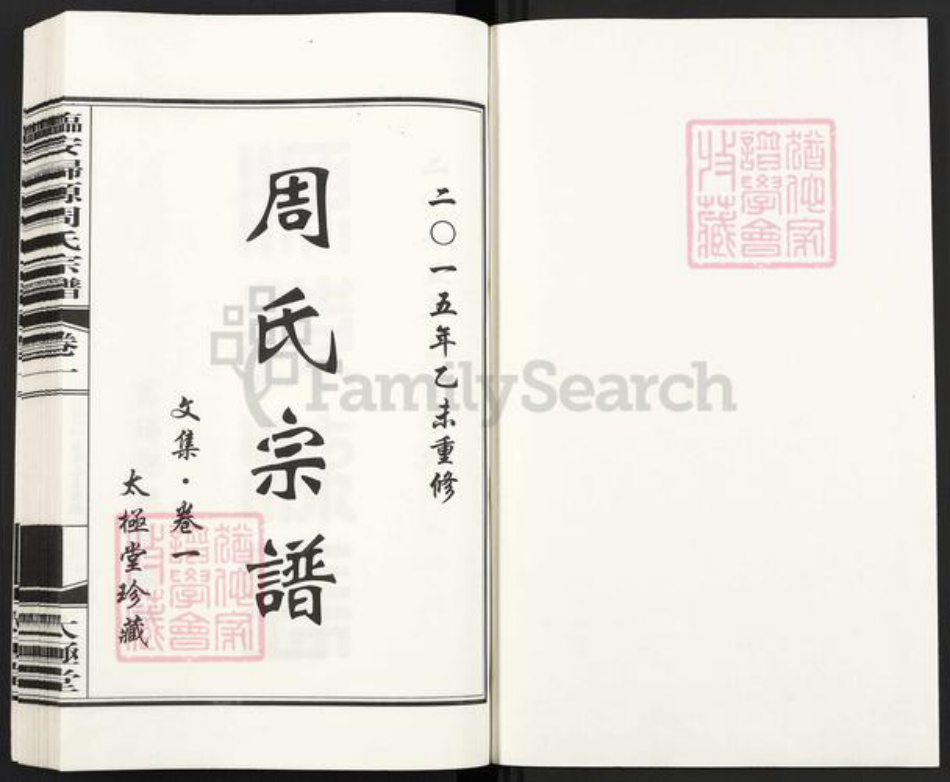 二〇一五年乙未重修
周氏宗譜
文集·卷一
太極堂珍藏
臨安歸源周氏宗譜
卷一
太極堂
猶他家譜學會收藏
猶他家譜學會收藏
FamilySearch